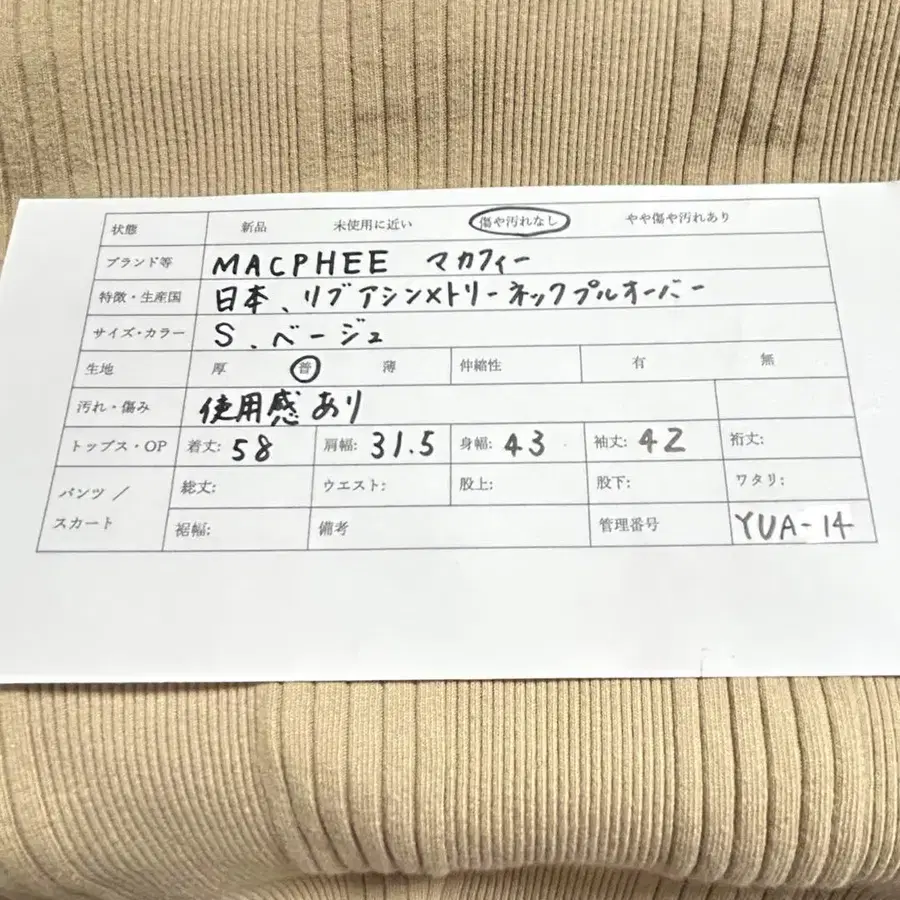 状態 新品 未使用に近い 傷や汚れなし やや傷や汚れあり
ブランド等 MACPHEE マカフィー
特徴・生産国 日本、リブアシンメトリーネックプルオーバー
サイズ・カラー S、ベージュ
生地 厚 普 薄 伸縮性 有 無
汚れ・傷み 使用感あり
トップス・OP 着丈: 58 肩幅: 31.5 身幅: 43 袖丈: 42 裄丈:
パンツ／スカート 総丈: ウエスト: 股上: 股下: ワタリ:
裾幅: 備考 管理番号 YUA-14